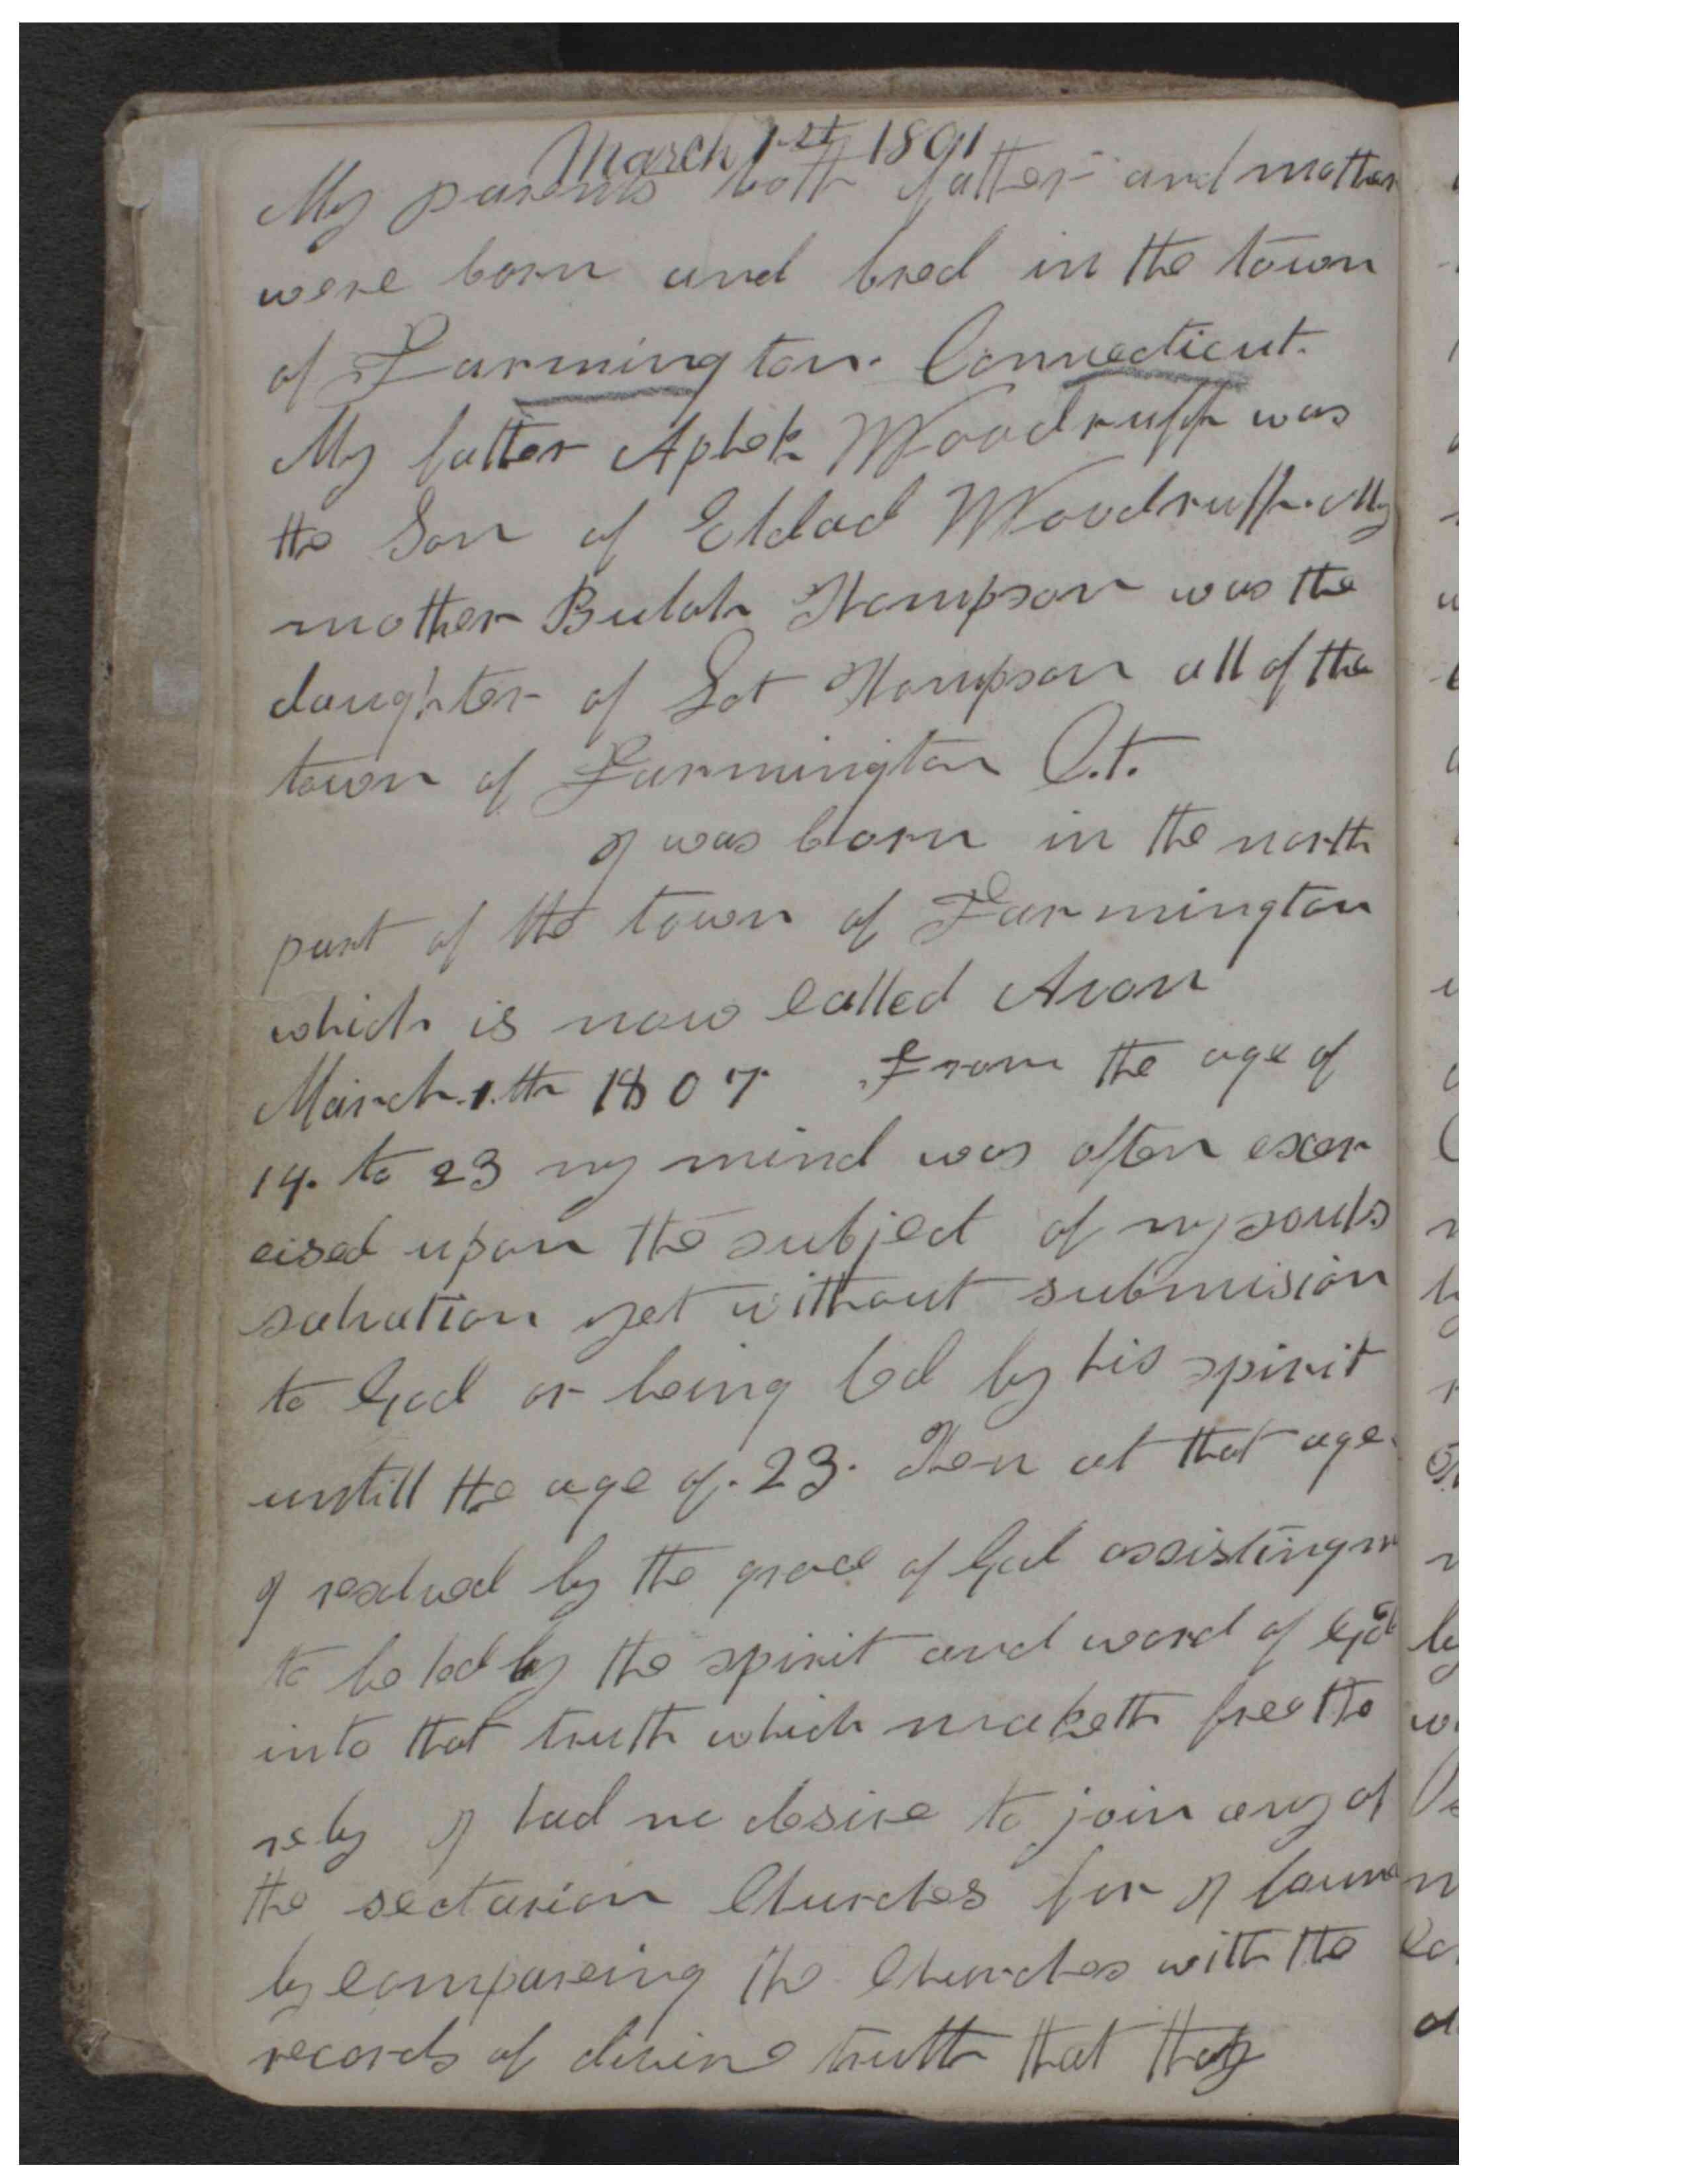 March 1st 1891
My parents both father and mother
were born and bred in the town
of Farmington. Connecticut.
My father Aphek Woodruff was
the Son of Eldad Woodruff. My
mother Bulah Thompson was the
daughter of Lot Thompson all of the
town of Farmington C.t.
I was born in the north
part of the town of Farmington
which is now called Avon
March.1.th 1807 From the age of
14. to 23 my mind was often exer
cised upon the subject of my souls
salvation yet without submision
to God or being led by his spirit
untill the age of. 23. Then at that age
I resolved by the grace of God assisting
to be led by the spirit and word of God
into that truth which maketh free the
reby I had no desire to join any of
the sectarian Churches for I found
by compareing the Churches with the
records of divine truth that they